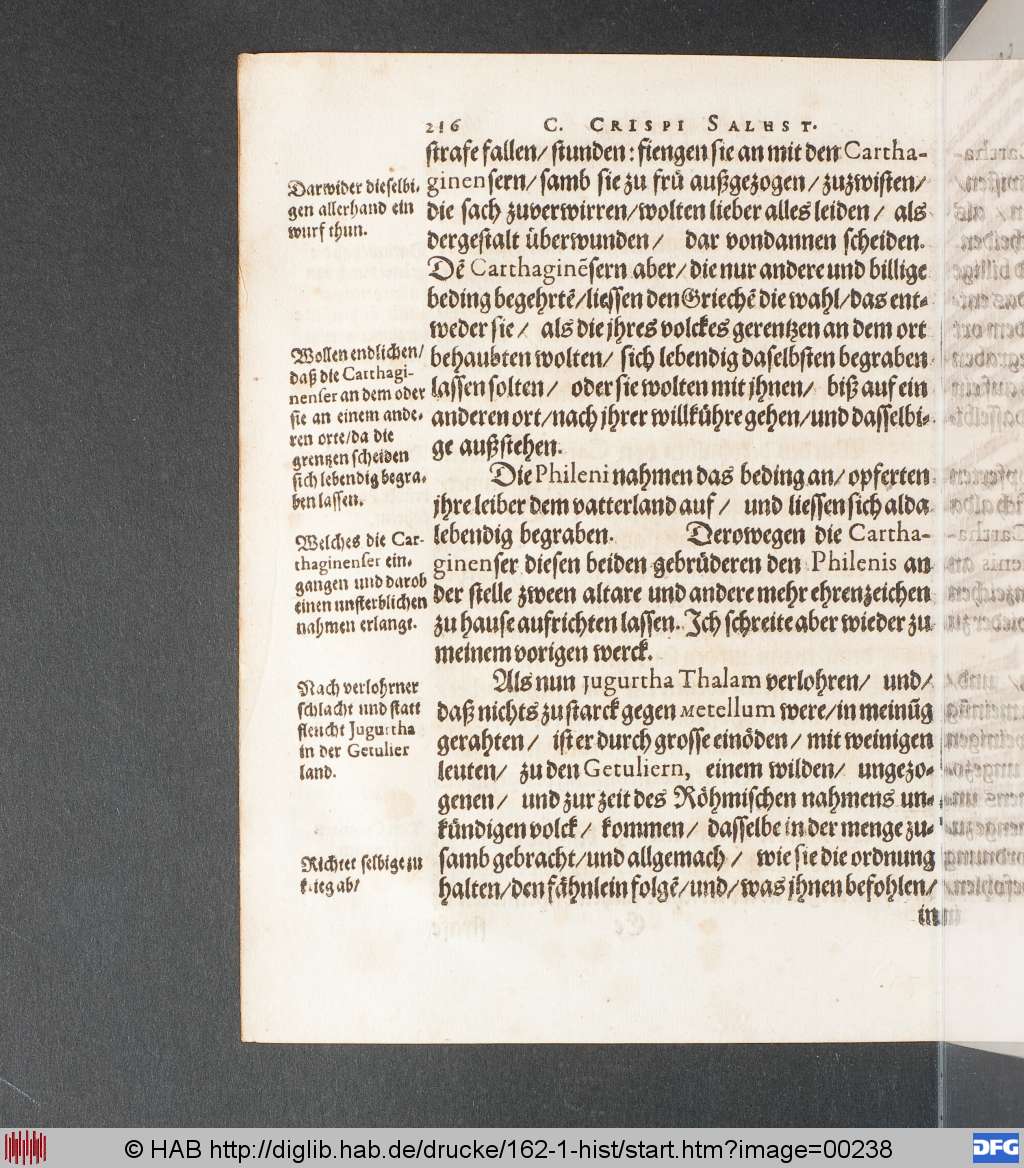 216 C. CRISPI SALUST.
strafe fallen/ stunden: fiengen sie an mit den Cartha-
ginensern/ samb sie zu frü außgezogen/ zuzwisten/
die sach zuverwirren/wolten lieber alles leiden/ als
dergestalt überwunden/ dar vondannen scheiden.
Dē Carthaginēsern aber/ die nur andere und billige
beding begehrtē/liessen den Griechē die wahl/das ent-
weder sie/ als die jhres volckes gerentzen an dem ort
behaubten wolten/ sich lebendig daselbsten begraben
lassen solten/ oder sie wolten mit jhnen/ biß auf ein
anderen ort/nach jhrer willkühre gehen/und dasselbi-
ge außstehen.
Die Phileni nahmen das beding an/ opferten
jhre leiber dem vatterland auf/ und liessen sich alda
lebendig begraben. Derowegen die Cartha-
ginenser diesen beiden gebrüderen den Philenis an
der stelle zween altare und andere mehr ehrenzeichen
zu hause aufrichten lassen. Jch schreite aber wieder zu
meinem vorigen werck.
Als nun Jugurtha Thalam verlohren/ und/
daß nichts zu starck gegen Metellum were/in meinūg
gerahten/ ist er durch grosse einöden/ mit weinigen
leuten/ zu den Getuliern, einem wilden/ ungezo-
genen/ und zur zeit des Röhmischen nahmens un-
kündigen volck/ kommen/ dasselbe in der menge zu-
samb gebracht/und allgemach/ wie sie die ordnung
halten/den fähnlein folgē/und/was jhnen befohlen/
in
Darwider dieselbi-
gen allerhand ein
wurf thun.
Wollen endlichen/
daß die Carthagi-
nenser an dem oder
sie an einem ande-
ren orte/da die
grentzen scheiden
sich lebendig begra-
ben lassen.
Welches die Car-
thaginenser ein-
gangen und darob
einen unsterblichen
nahmen erlangt.
Nach verlohrner
schlacht und statt
fleucht Jugurtha
in der Getulier
land.
Richtet selbige zu
krieg ab/
© HAB http://diglib.hab.de/drucke/162-1-hist/start.htm?image=00238
DFG